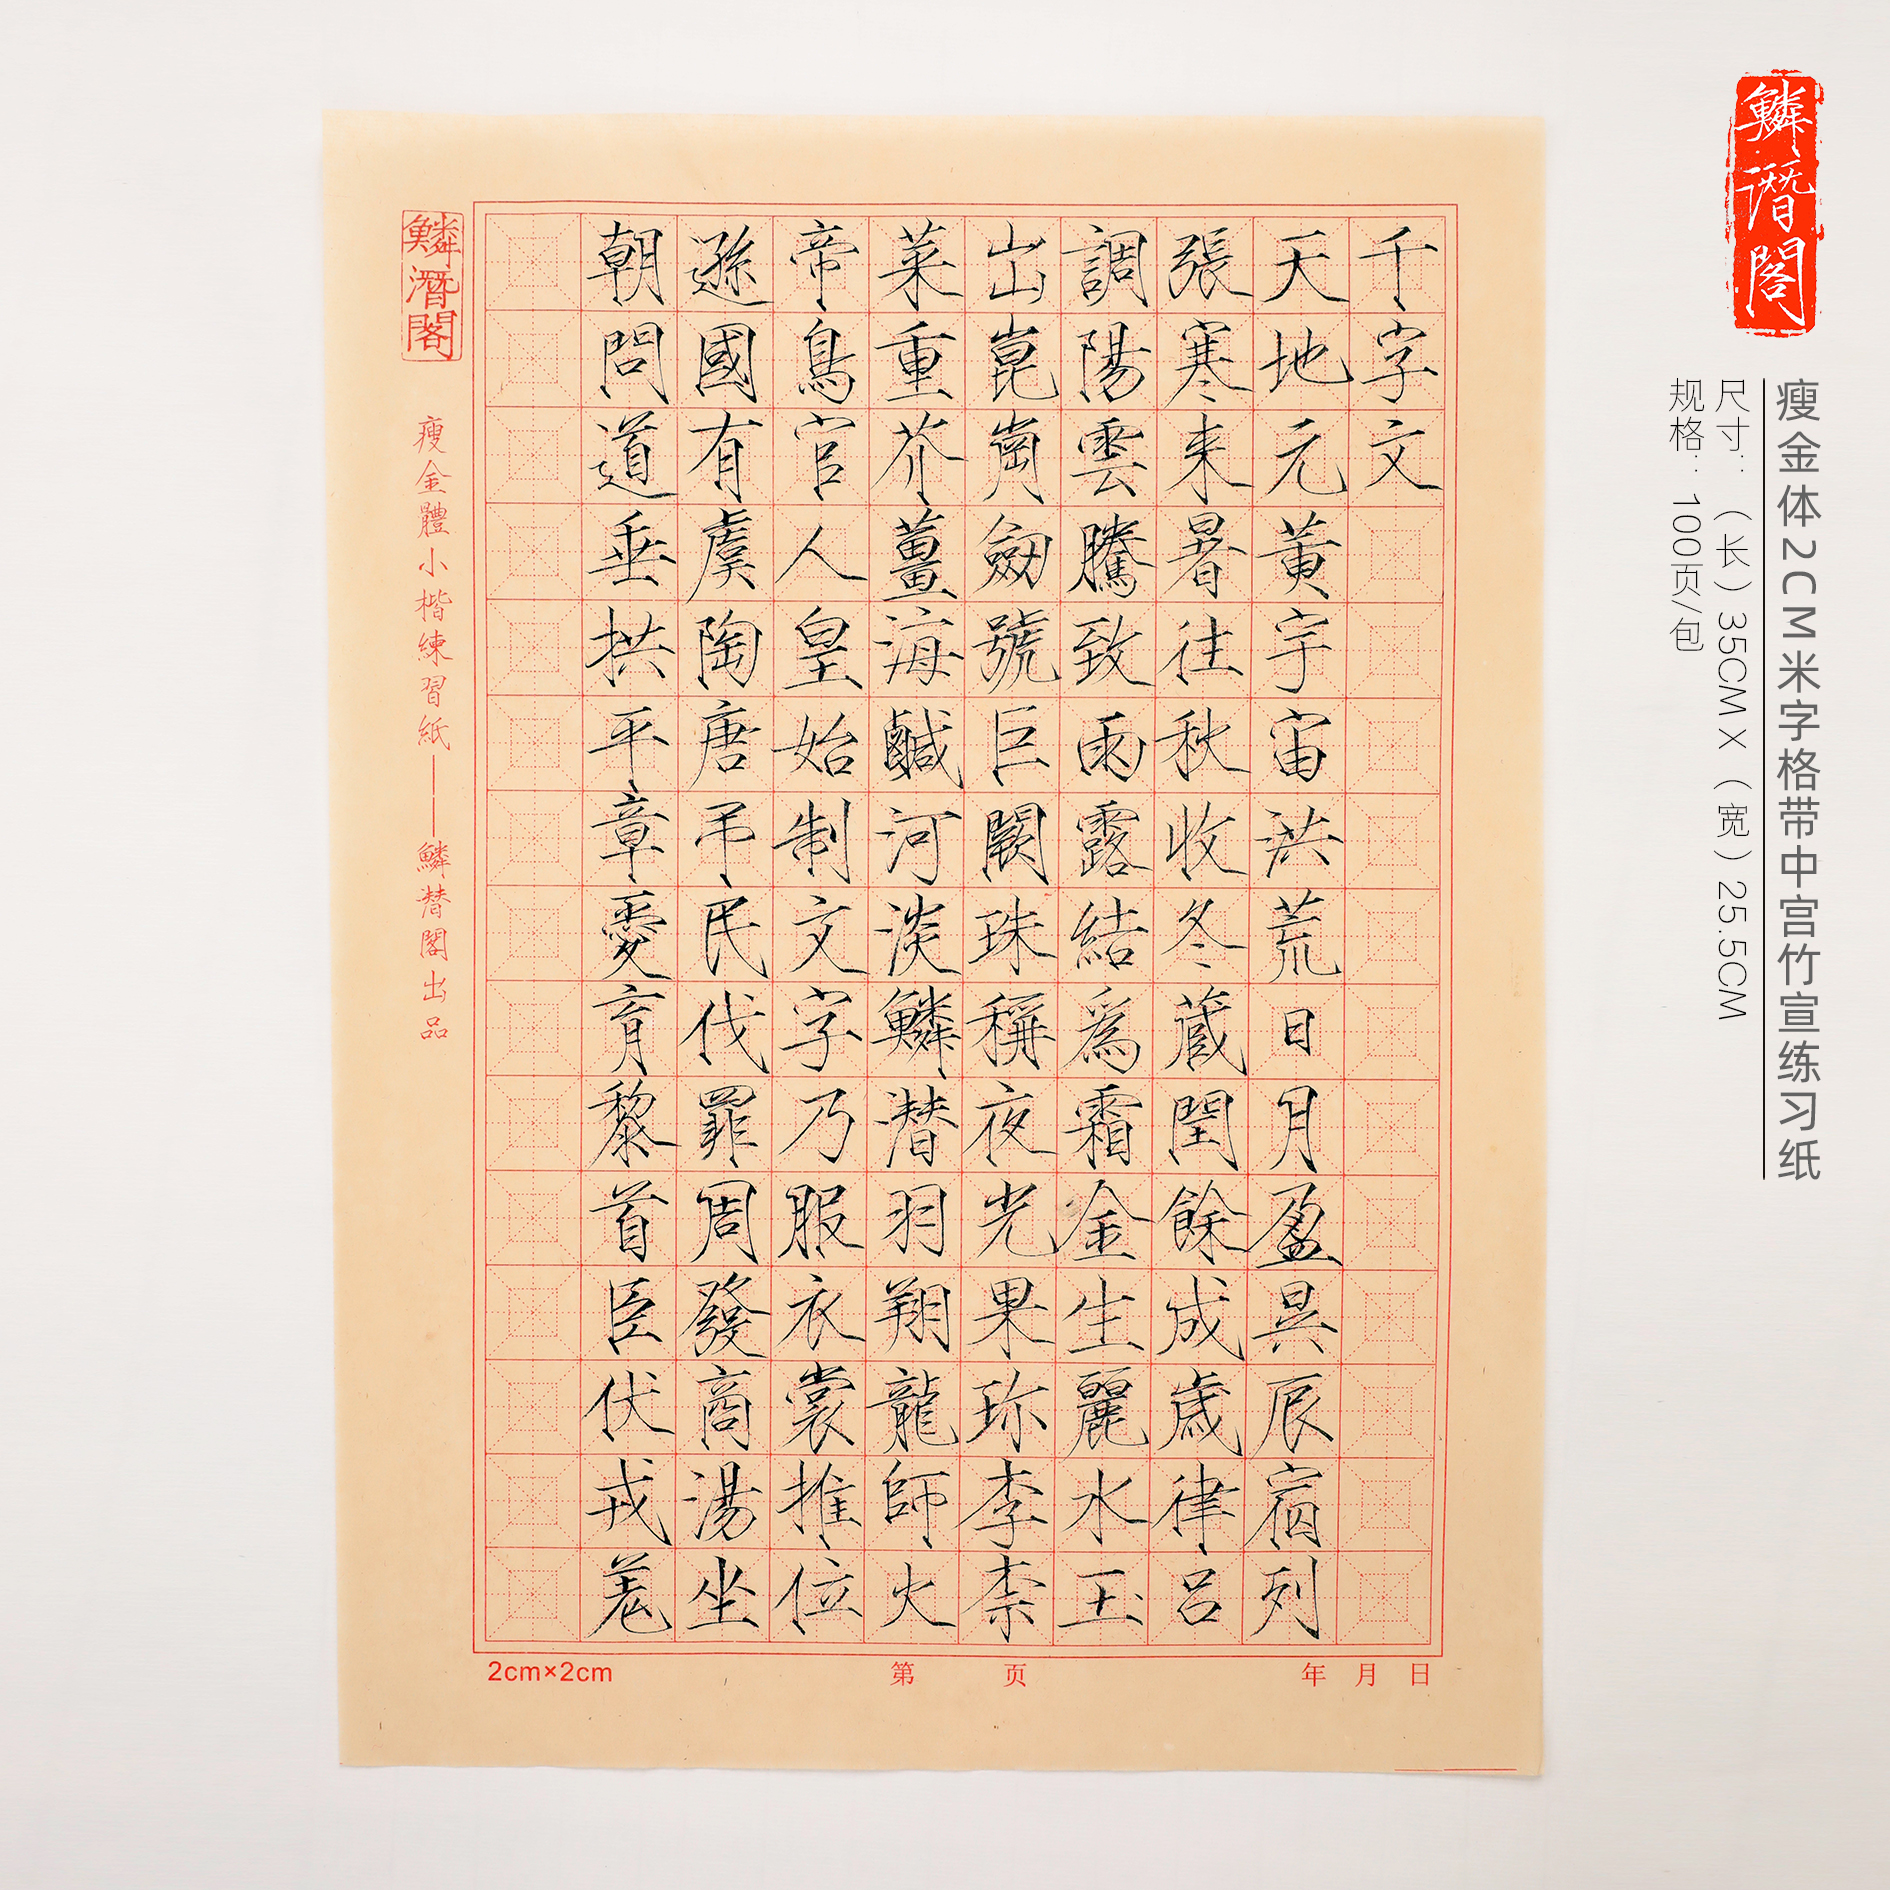 鱗潛閣
瘦金体2CM米字格带中宫竹宣练习纸
尺寸：（长）35CM X（宽）25.5CM
规格：100页/包
千字文
天地元黃宇宙洪荒日月盈昃辰宿列
張寒来暑往秋收冬蔵閏餘成歳律呂
調陽雲騰致雨露結爲霜金生麗水玉
出崑崗劔號巨闕珠稱夜光果珎李柰
菜重芥薑海鹹河淡鱗潜羽翔龍師火
帝鳥官人皇始制文字乃服衣裳推位
遜國有虞陶唐弔民伐罪周發商湯坐
朝問道垂拱平章愛育黎首臣伏戎羌
鱗潛閣
瘦金體小楷練習紙——鱗潜閣出品
2cm×2cm
第 页
年 月 日